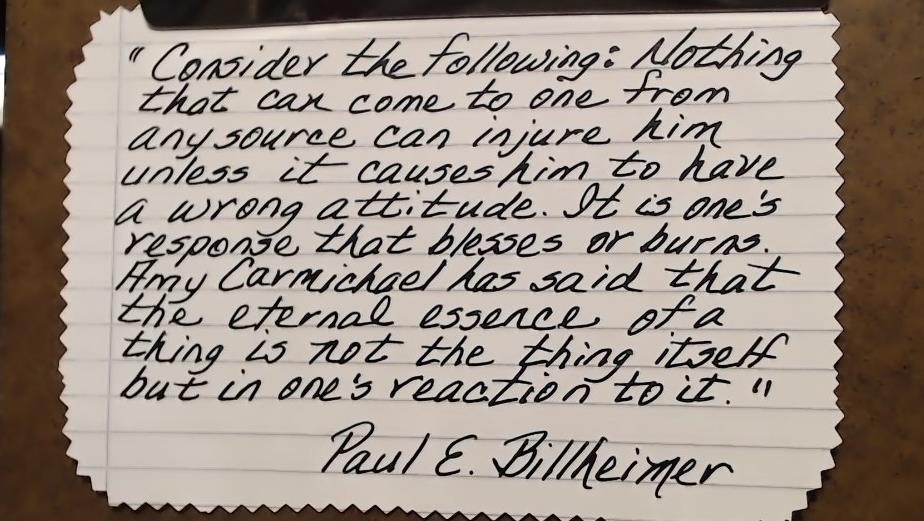 "Consider the following: Nothing
that can come to one from
any source can injure him
unless it causes him to have
a wrong attitude. It is one's
response that blesses or burns.
Amy Carmichael has said that
the eternal essence of a
thing is not the thing itself
but in one's reaction to it."
Paul E. Billheimer